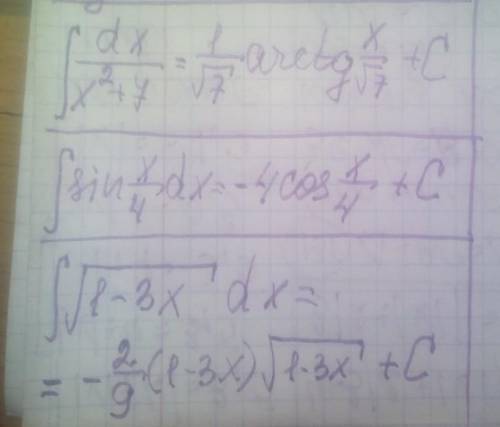 ∫ dx/(x²+7) = 1/√7 arctg x/√7 + C
∫ sin x/4 dx = -4 cos x/4 + C
∫ √(1-3x) dx =
= -2/9 (1-3x) √(1-3x) + C